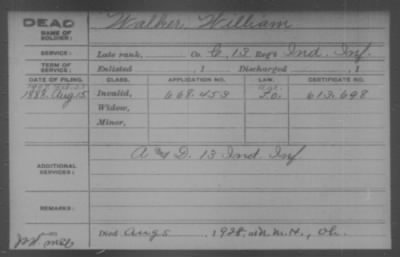 DEAD
NAME OF SOLDIER: Walker, William
SERVICE: Late rank, Co. C, 13 Reg't Ind. Inf.
TERM OF SERVICE: Enlisted , 1 Discharged , 1
DATE OF FILING. CLASS. APPLICATION NO. LAW. CERTIFICATE NO.
1888. Aug. 15 Invalid, 668.453 613.698
Widow,
Minor,
ADDITIONAL SERVICES: A & D. 13 Ind. Inf
REMARKS:
Died Aug 5, 1928, at N.M.H., Oh.